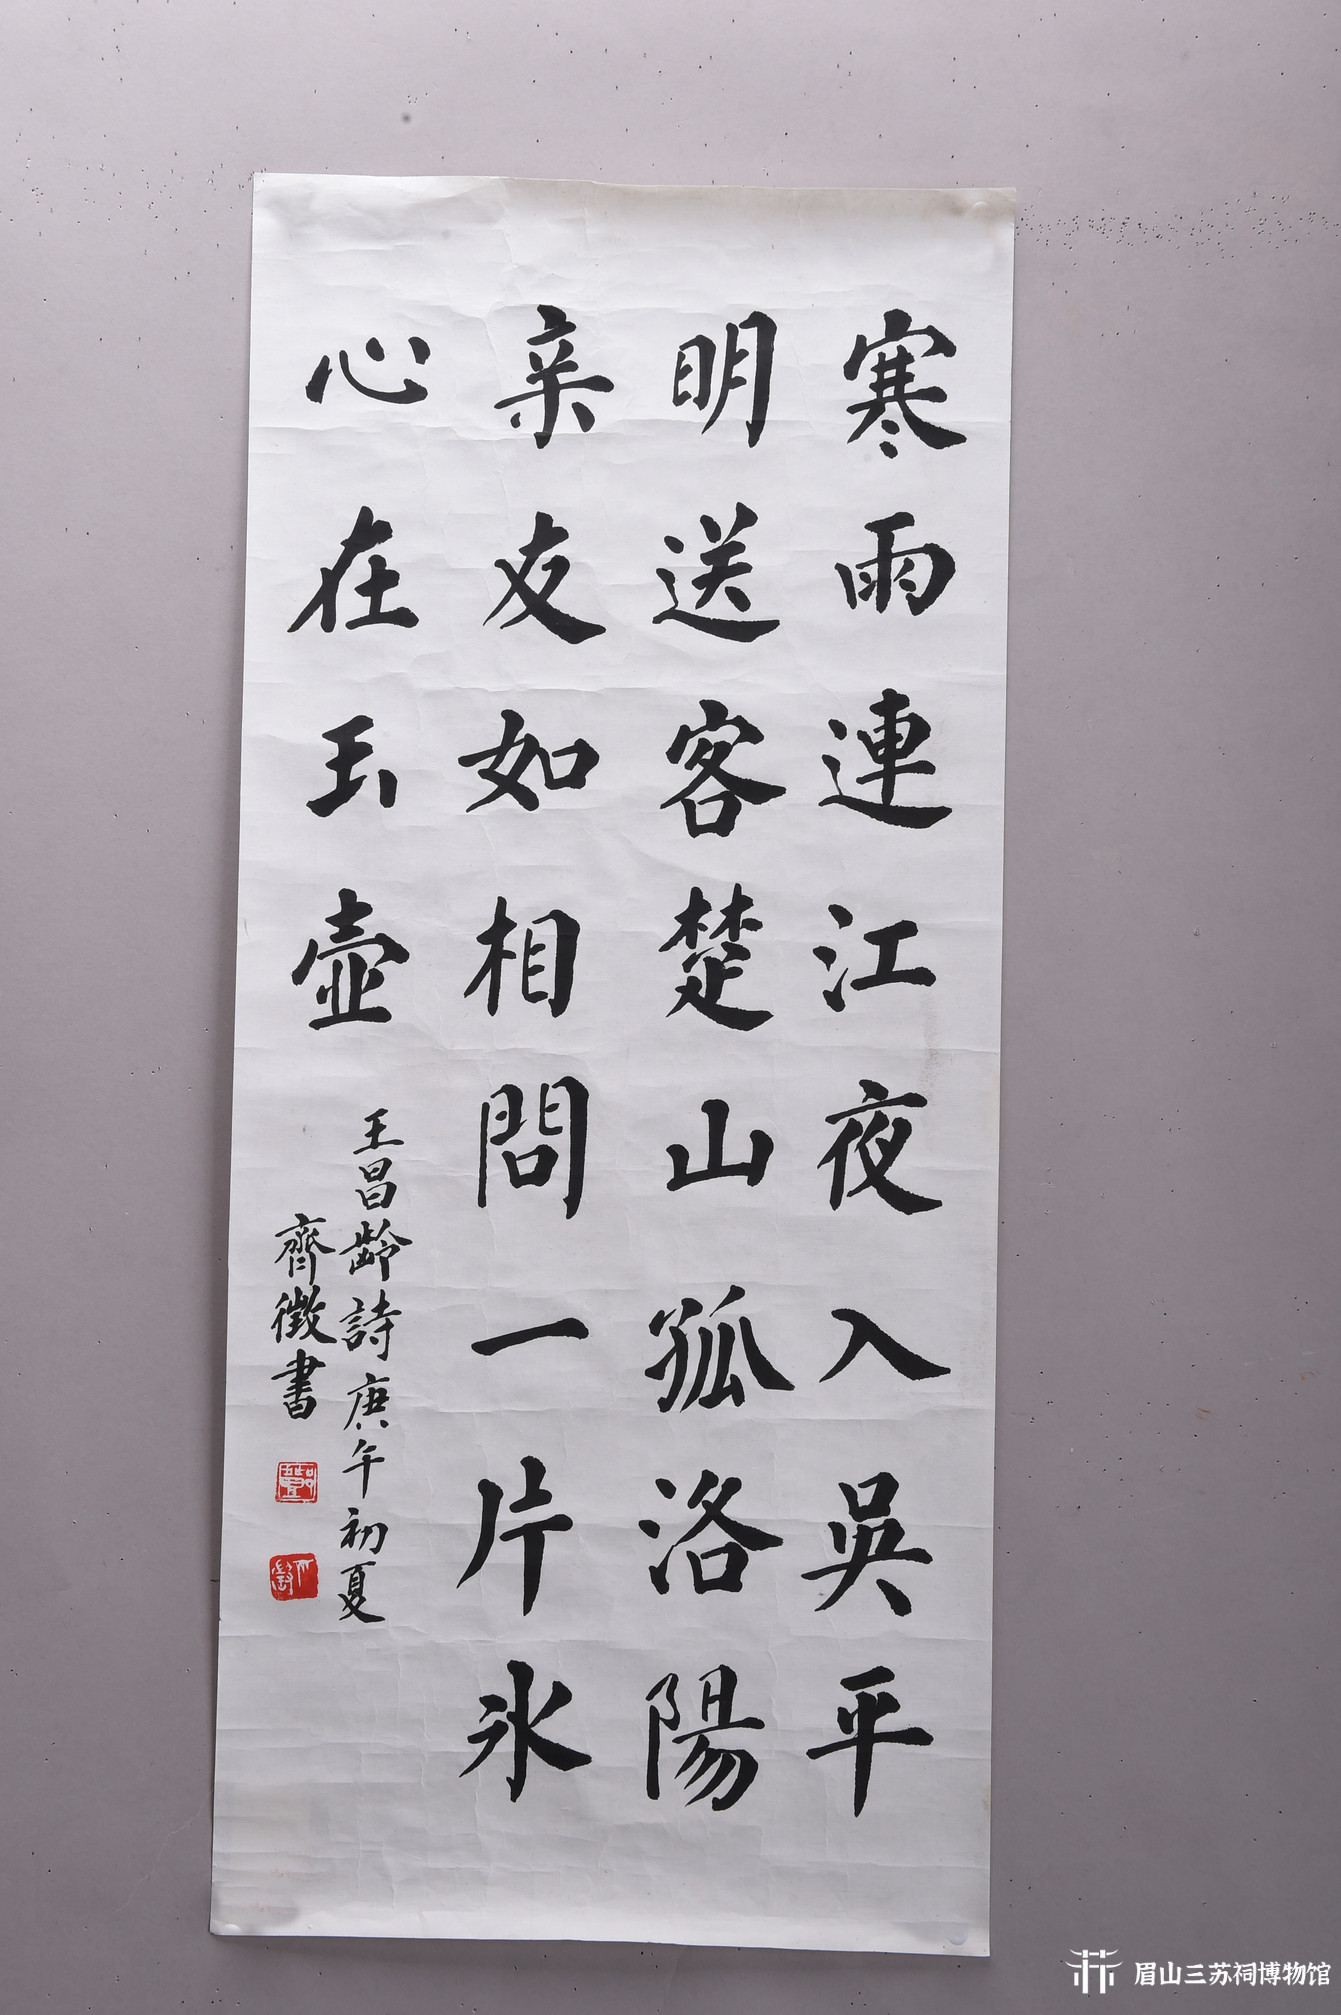 寒雨連江夜入吳平
明送客楚山孤洛陽
亲友如相問一片氷
心在玉壺
王昌齡詩庚午初夏
齊徵書
眉山三苏祠博物馆